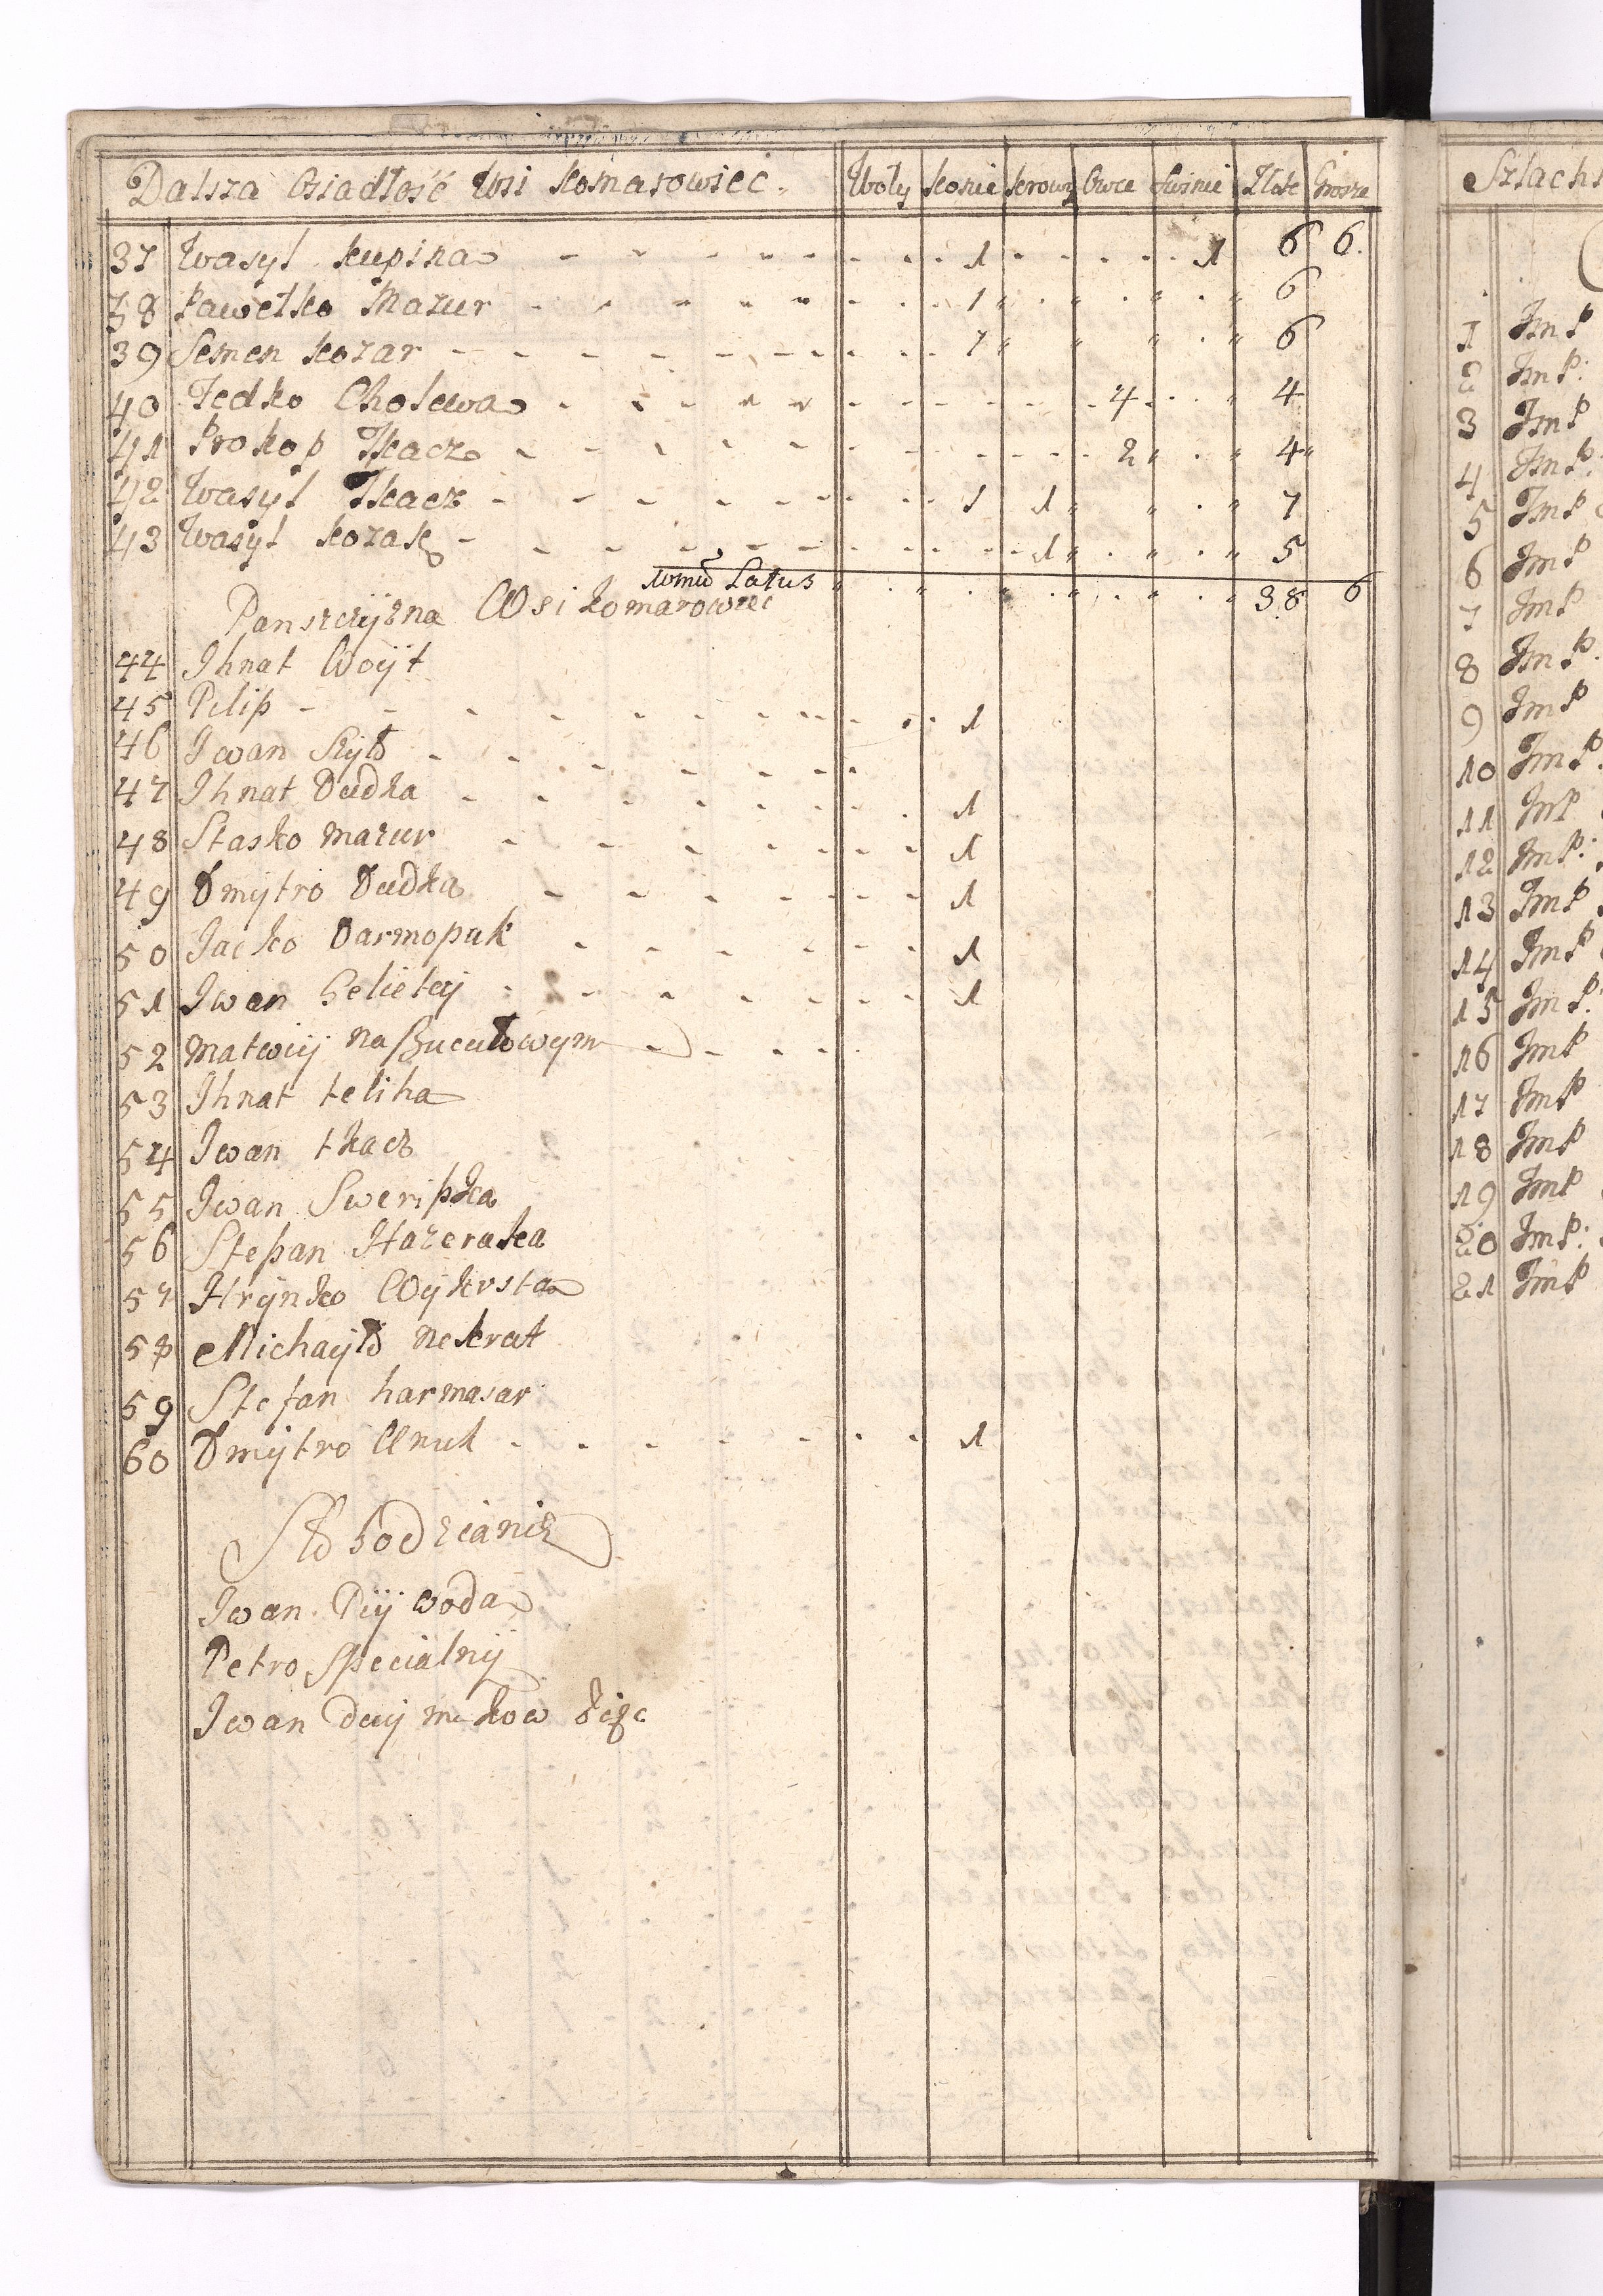 Dalsza Osiadłość Wsi Komarowiec. Woły Konie Krowy Owce Świnie Złote Grosze
37 Wasyl Kupina 1 1 6 6.
38 Pawełko Mazur 1 6
39 Semen Kozar 1 6
40 Fedko Cholewa 4 4
41 Prokop Tkacz 2 4
42 Wasyl Tkacz 1 1 7
43 Wasyl Kozak 1 5
Latus 38 6
Panszczyzna Wsi Komarowiec
44 Ihnat Woyt
45 Pelip 1
46 Iwan
47 Ihnat Dudka 1
48 Stasko Mazur 1
49 Dmytro Dudka 1
50 Jacko Darmopuk 1
51 Iwan 1
52 Matwiy na Bucułowym
53 Ihnat teliha
54 Iwan tkacz
55 Iwan Sweripka
56 Stepan
57 Hrynko
58 Michayło Nekrut
59 Stefan harmasar
60 Dmytro Unuk 1
Słobodzianie
Iwan Piy woda
Petro Specialny
Iwan
Szlach
1 Jm P
2 Jm P:
3 Jm P
4 Jm P:
5 Jm P
6 Jm P
7 Jm P
8 Jm P.
9 Jm P
10 Jm P.
11 Jm P
12 Jm P:
13 Jm P
14 Jm P
15 Jm P.
16 Jm P
17 Jm P
18 Jm P
19 Jm P
20 Jm P:
21 Jm P